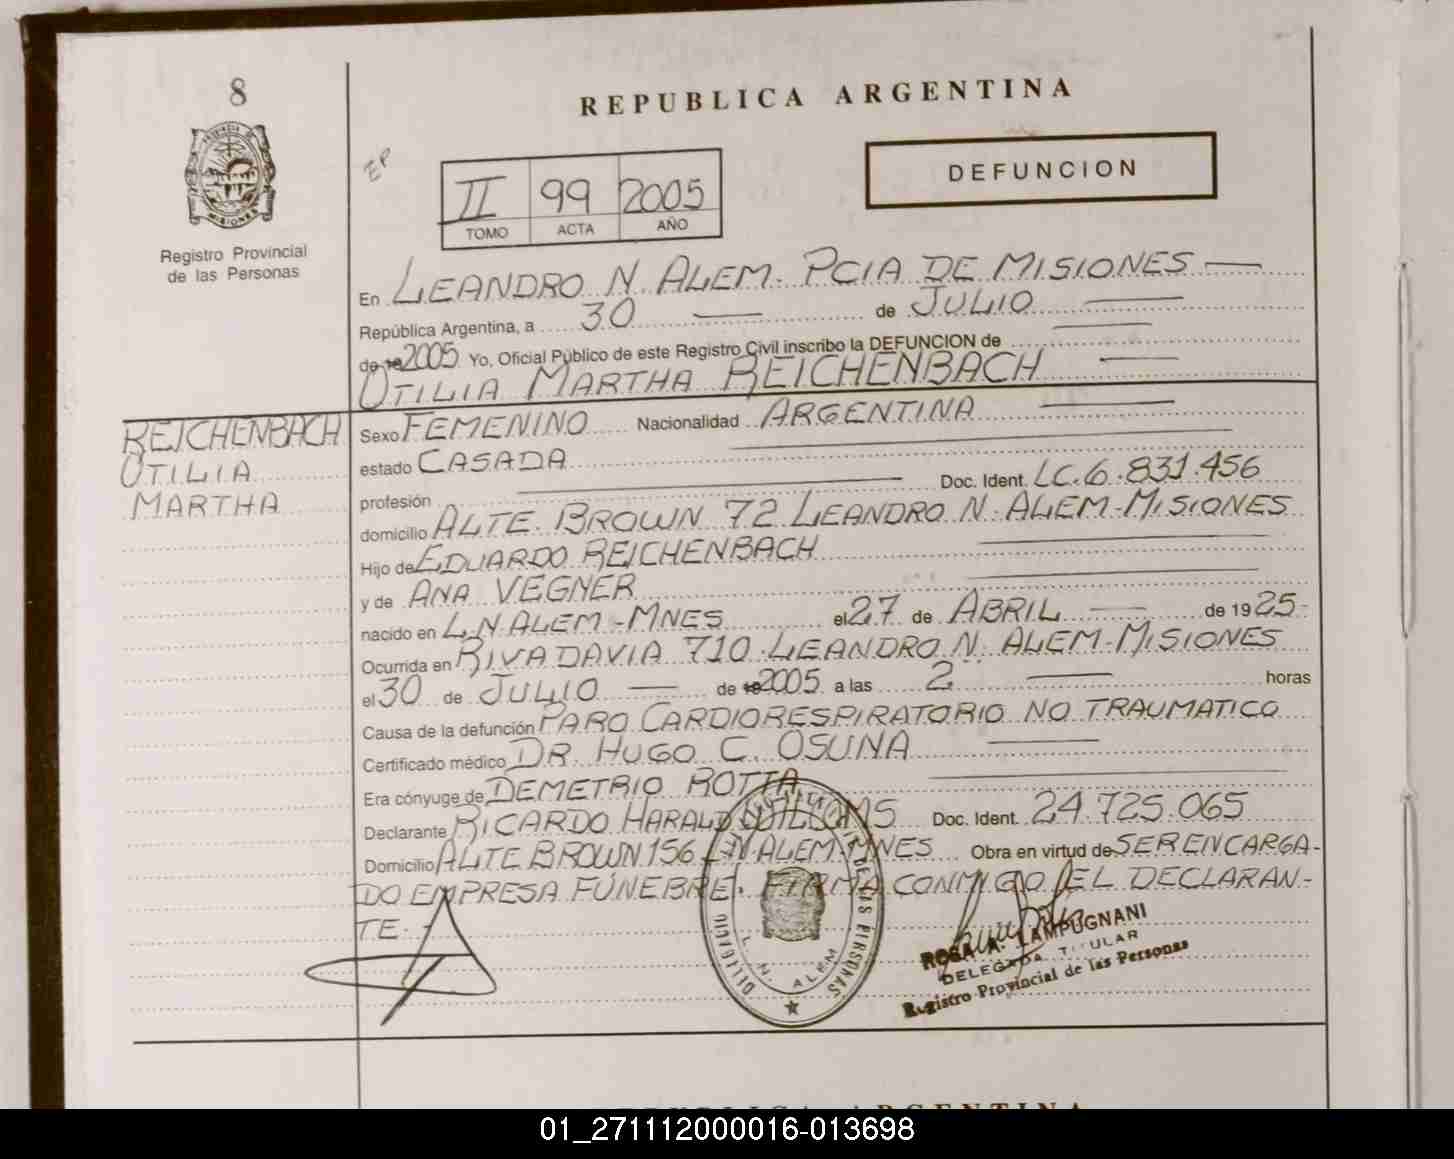 8
REPUBLICA ARGENTINA
PROVINCIA DE
MISIONES
Registro Provincial
de las Personas
EP
DEFUNCION
II 99 2005
TOMO ACTA AÑO
En LEANDRO N. ALEM - PCIA DE MISIONES
República Argentina, a 30 de JULIO
de 2005 Yo, Oficial Público de este Registro Civil inscribo la DEFUNCION de
OTILIA MARTHA REICHENBACH
REICHENBACH
OTILIA
MARTHA
Sexo FEMENINO Nacionalidad ARGENTINA
estado CASADA
profesión Doc. Ident. LC. 6.831.456
domicilio ALTE. BROWN 72 LEANDRO N. ALEM - MISIONES
Hijo de EDUARDO REICHENBACH
y de ANA VEGNER
nacido en L. N. ALEM - MNES el 27 de ABRIL de 1925
Ocurrida en RIVADAVIA 710 - LEANDRO N. ALEM - MISIONES
el 30 de JULIO de 2005 a las 2 horas
Causa de la defunción PARO CARDIORESPIRATORIO NO TRAUMATICO
Certificado médico DR. HUGO C. OSUNA
Era cónyuge de DEMETRIO ROTTA
Declarante RICARDO HARALD Doc. Ident. 24.725.065
Domicilio ALTE BROWN 156 L. N. ALEM - MNES Obra en virtud de SER ENCARGA-
DO EMPRESA FÚNEBRE. FIRMA CONMIGO EL DECLARAN-
TE.-
DE LAS PERSONAS
L. N. ALEM
ROSA A. LAMPUGNANI
DELEGADA TITULAR
Registro Provincial de las Personas
REPUBLICA ARGENTINA
01_271112000016-013698